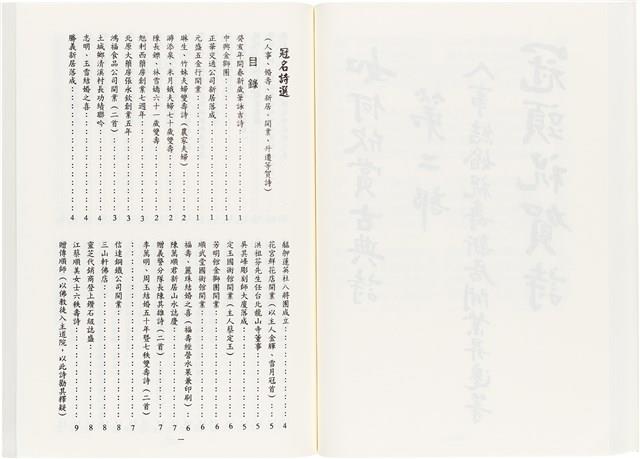 冠名詩選
目錄
(人事、婚壽、新居、開業、升遷等賀詩)
癸亥年開春新歲筆詠吉詩…………1
中興金獅團…………1
正華交通公司新居落成…………1
元盛五金行開業…………1
琳生、竹妹夫婦雙壽詩(農家夫婦)…………2
游添泉、米月娥夫婦七十歲雙壽…………2
陳長鏢、林雪嬌六十一歲雙壽…………2
旭利西藥房創業七週年…………3
北原大藥房張永欽創業五年…………3
鴻福食品公司開業(二首)…………3
土城鄉清溪村長功績聯吟…………4
志明、玉雪結婚之喜…………4
勝義新居落成…………4
艋舺蓮英社八將團成立…………4
花宮鮮花店開業(以主人金輝、雪月冠首)…………5
洪祖芬先生任台北龍山寺董事…………5
吳其峰彫刻師大廈落成…………5
定玉國術館開業(主人蔡定玉)…………6
芳明館金獅團開業…………6
順武堂國術館開業…………6
福壽、麗珠結婚之喜(福壽經營水果兼印刷)…………6
陳萬順君新居山水誌慶…………7
贈義警分隊長陳其雄詩(二首)…………7
李萬明、周玉結婚五十年暨七秩雙壽詩(二首)
…………7
信達鋼鐵公司開業…………8
三山軒佛店…………8
靈芝代銷商登上鑽石級誌盛…………8
江蔡順美女士六秩壽詩…………9
贈傅順師(以佛教徒入主道院,以此詩勸其釋疑)…………9
一